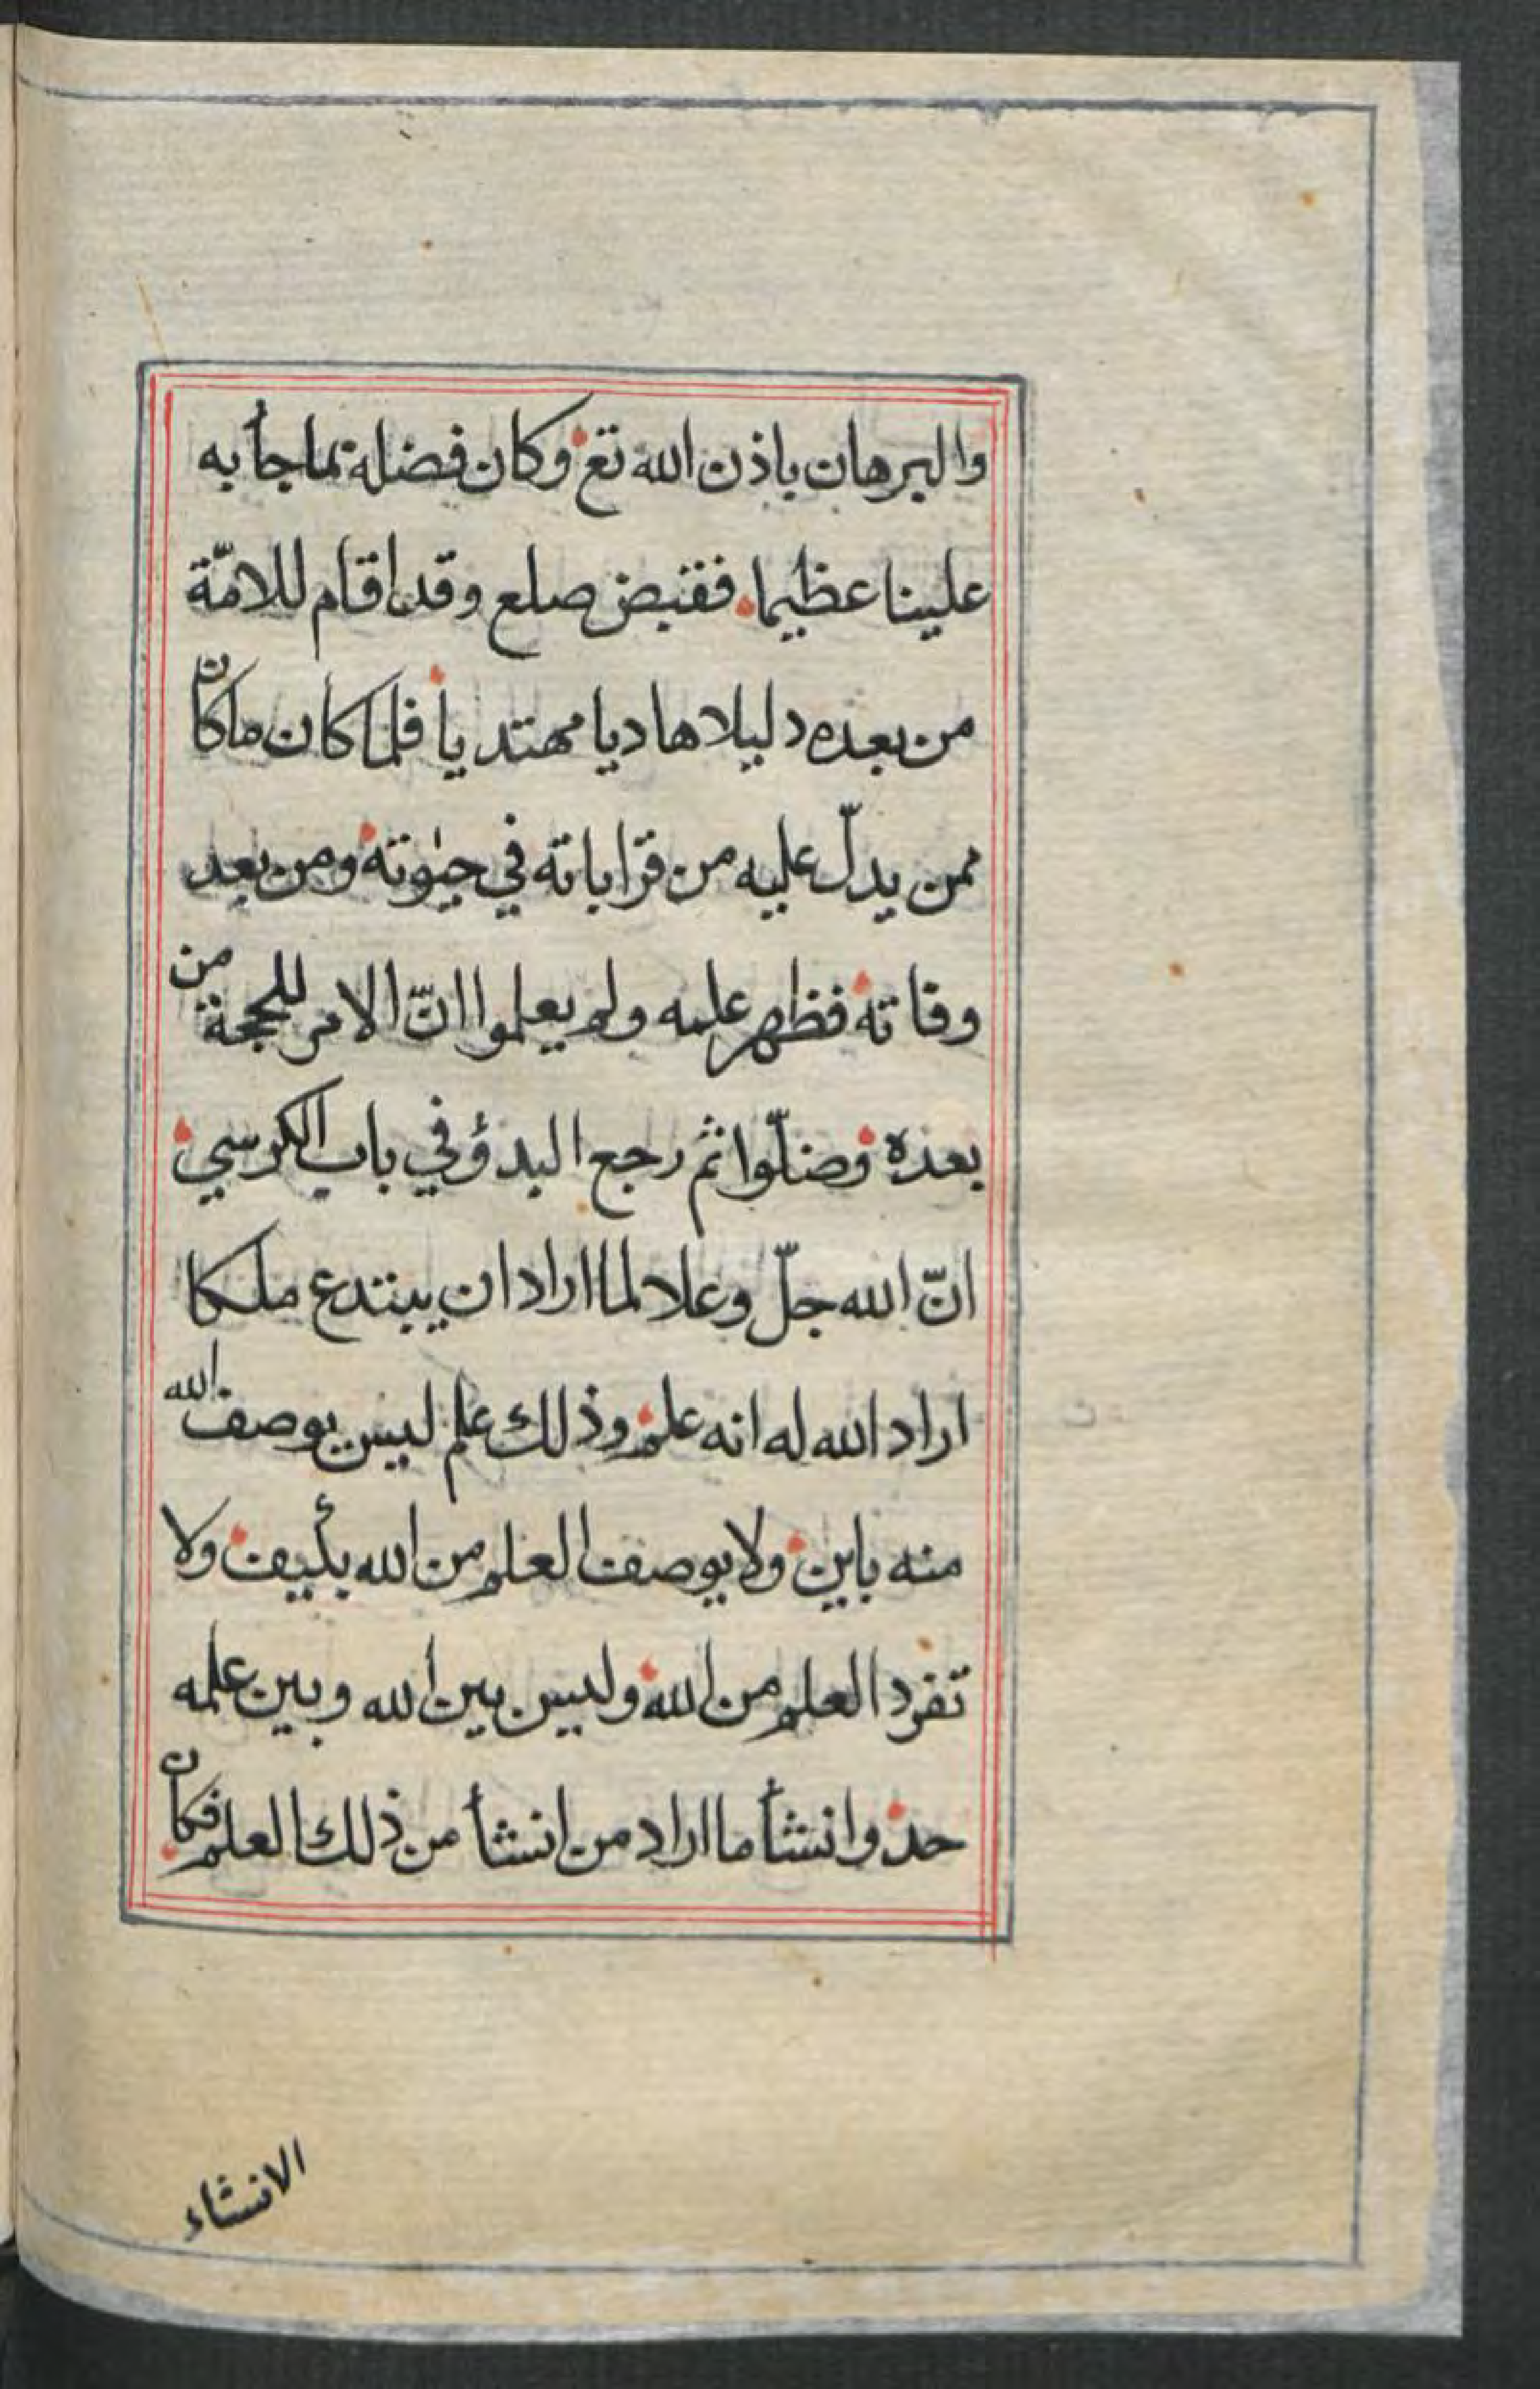 والبرهان باذن الله تع وكان فضله بما جأ به
علينا عظيما فقبض صلع وقد اقام للامّة
من بعده دليلا هاديا مهتديا فلما كان ما كان
ممن يدلّ عليه من قراباته في حيوته ومن بعد
وفاته فظهر علمه ولم يعلموا انّ الامر للحجة من
بعده وضلّوا ثم رجع البدؤ في باب الكرسي
انّ الله جلّ وعلا لما اراد ان يبتدع ملكا
اراد الله له انه علم وذلك علم ليس يوصف الله
منه باين ولا يوصف العلم من الله بكيف ولا
تفرد العلم من الله وليس بين الله وبين علمه
حد وانشأ ما اراد من انشأ من ذلك العلم فكان
الانشاء